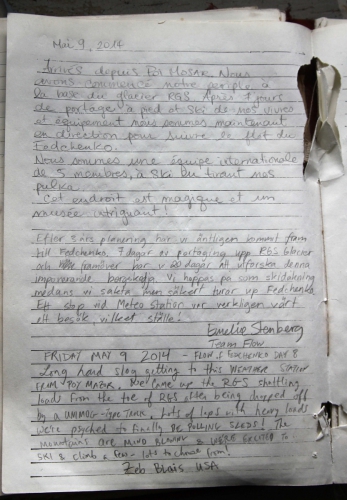 Mai 9, 2014
Arrivés depuis Poi Mosar. Nous
avons commencé notre périple à
la base du glacier RGS. Après 7 jours
de portage à pied et ski de nos vivres
et équipement nous sommes maintenant
en direction pour suivre le flot du
Fedchenko.
Nous sommes une équipe internationale
de 5 membres, à ski en tirant nos
pulka.
Cet endroit est magique et un
musée intriguant!
Efter 3 års planering har vi äntligen kommit fram
till Fedchenko. 7 dagar av portaging upp RGS-Glacier
och framöver har vi 20 dagar att utforska denna
imponerande bergskedja. Vi hoppas på som skidåkning
medans vi sakta, men säkert turar up Fedchenko.
Ett stop vid Meteo Station var verkligen värt
ett besök, vilket ställe!
Emelie Stenberg
Team Flow
FRIDAY MAY 9 2014 - FLOW & FEDCHENKO DAY 8
Long head slog getting to this WEATHER STATION
FROM POY MAZOR. We came up the RGS shuttling
loads from the toe of RGS after being dropped off
by a UNIMOG-Type TONK. Lots of laps with heavy loads
We're psyched to finally BE PULLING SLEDS! The
MOUNTAINS ARE MIND BLOWING & WE'RE EXCITED TO
SKI & climb a few - lots to choose from!
Zeb Blais USA